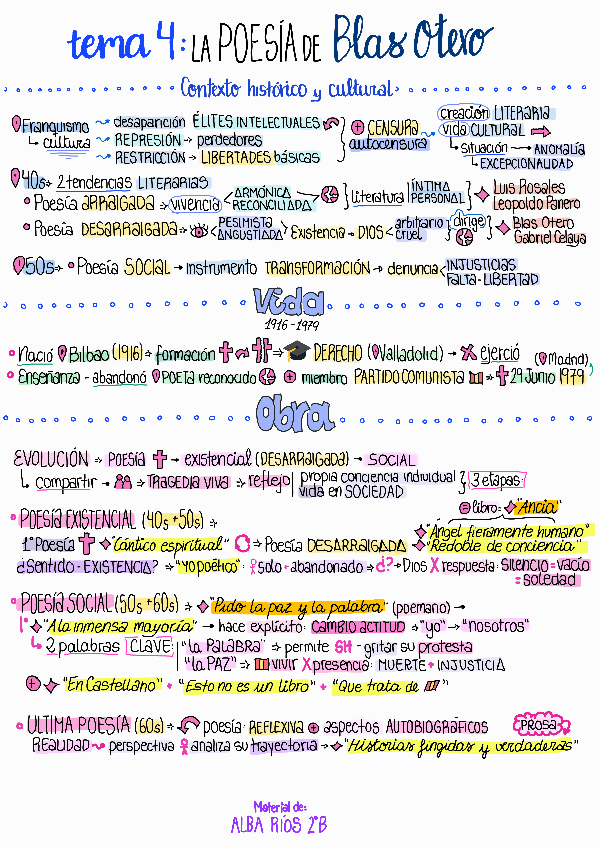 tema 4: LA POESÍA DE Blas Otero
Contexto histórico y cultural
Franquismo → desaparición ÉLITES INTELECTUALES
cultura → REPRESIÓN → perdedores
→ RESTRICCIÓN → LIBERTADES básicas
+ CENSURA
autocensura
creación LITERARIA
vida CULTURAL
situación → ANOMALÍA
EXCEPCIONALIDAD
40s → 2 tendencias LITERARIAS
• Poesía ARRAIGADA → vivencia < ARMÓNICA RECONCILIADA } literatura | ÍNTIMA PERSONAL } Luis Rosales
Leopoldo Panero
• Poesía DESARRAIGADA → < PESIMISTA ANGUSTIADA > Existencia → DIOS < arbitrario cruel dirige } Blas Otero
Gabriel Celaya
50s → • Poesía SOCIAL → instrumento TRANSFORMACIÓN → denuncia < INJUSTICIAS
FALTA - LIBERTAD
Vida
1916 - 1979
• Nació Bilbao (1916) → formación DERECHO (Valladolid) → ejerció (Madrid)
• Enseñanza - abandonó POETA reconocido + miembro PARTIDO COMUNISTA 29 Junio 1979
Obra
EVOLUCIÓN → POESÍA → existencial (DESARRAIGADA) → SOCIAL
compartir → → TRAGEDIA VIVA → reflejo | propia conciencia individual
vida en SOCIEDAD } 3 etapas:
= libro: "Ancia"
• POESÍA EXISTENCIAL (40s + 50s) →
"Ángel fieramente humano"
1ª Poesía "Cántico espiritual" → Poesía DESARRAIGADA "Redoble de conciencia"
¿Sentido - EXISTENCIA? → "YO poético": solo + abandonado → ¿? → Dios X respuesta: Silencio = vacío
= soledad
• POESÍA SOCIAL (50s + 60s) → "Pido la paz y la palabra" (poemario) →
1º "A la inmensa mayoría" → hace explícito: CAMBIO ACTITUD → "yo" → "nosotros"
2 palabras CLAVE: | "la PALABRA" → permite SH - gritar su protesta
"la PAZ" → VIVIR X presencia: MUERTE + INJUSTICIA
+ "En Castellano" + "Esto no es un libro" + "Que trata de"
• ÚLTIMA POESÍA (60s) → poesía: REFLEXIVA + aspectos AUTOBIOGRÁFICOS PROSA
REALIDAD perspectiva analiza su trayectoria → "Historias fingidas y verdaderas"
Material de:
ALBA RÍOS 2ºB